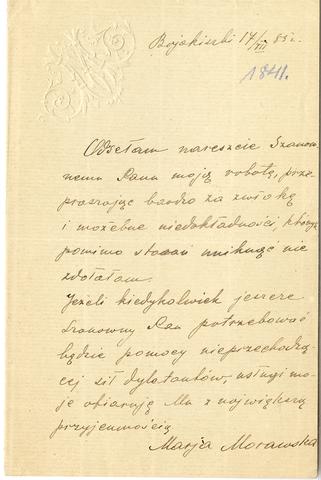 Bojakiszki 14/VII 85 r.
1841.
Odsełam nareszcie Szanow-
nemu Panu moją robotę, prze-
praszając bardzo za zwłokę
i możebne niedokładności, których
pomimo starań uniknąć nie
zdołałam.
Jeżeli kiedykolwiek jeszcze
Szanowny Pan potrzebować
będzie pomocy nieprzechodzą-
cej sił dyletantów, usługi mo-
je ofiaruję Mu z największą
przyjemnością
Marja Morawska